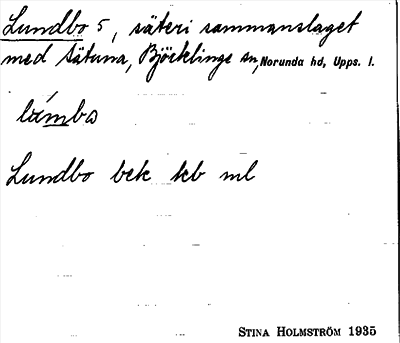 Lundbo 5, säteri sammanslaget
med Sätuna, Björklinge sn, Norunda hd, Upps. l.
lúmba
Lundbo bek kb ml
STINA HOLMSTRÖM 1935